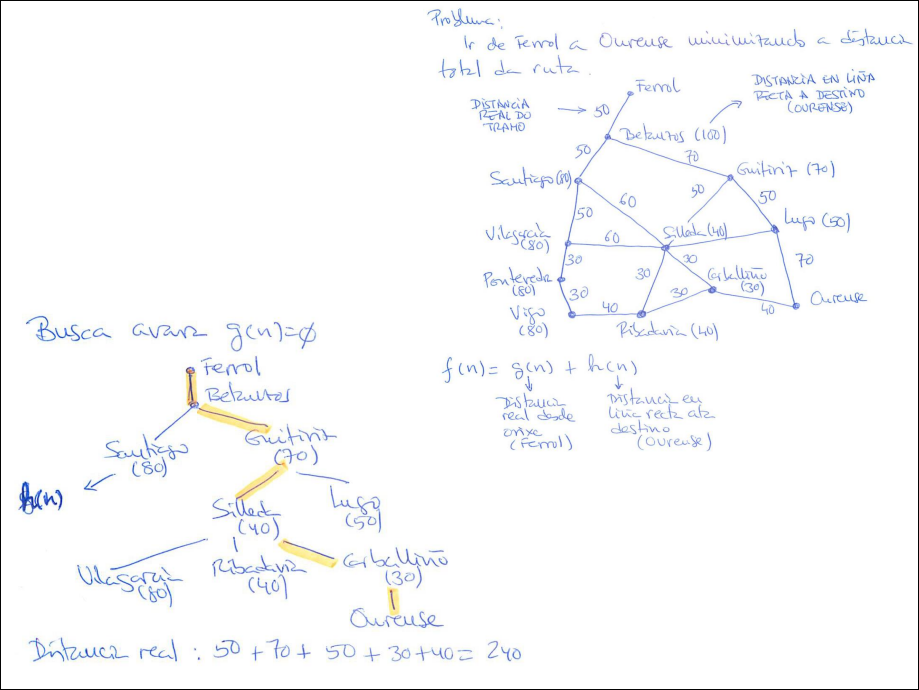 Problema:
Ir de Ferrol a Ourense minimizando a distancia
total da ruta.
Ferrol
DISTANCIA
REAL DO
TRAMO
50
DISTANCIA EN LIÑA
RECTA A DESTINO
(OURENSE)
Betanzos (100)
50
70
Santiago (80)
Guitiriz (70)
50
60
50
50
Vilagarcía
(80)
60
Silleda (40)
Lugo (50)
30
30
30
70
Pontevedra
(80)
Carballiño
(30)
30
30
Vigo
(80)
40
40
Ourense
Ribadavia (40)
Busca avara g(n)=∅
Ferrol
Betanzos
Santiago
(80)
Guitiriz
(70)
h(n)
Silleda
(40)
Lugo
(50)
Vilagarcía
(80)
Ribadavia
(40)
Carballiño
(30)
Ourense
Distancia real : 50 + 70 + 50 + 30 + 40 = 240
f(n) = g(n) + h(n)
Distancia
real desde
orixe
(Ferrol)
Distancia en
liña recta ata
destino
(Ourense)